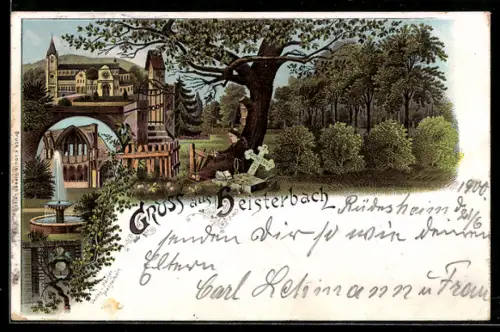 Gruss aus Heisterbach
1900
Rüdesheim d.
senden Dir so wie deinen
Eltern
Carl Lehmann u Frau